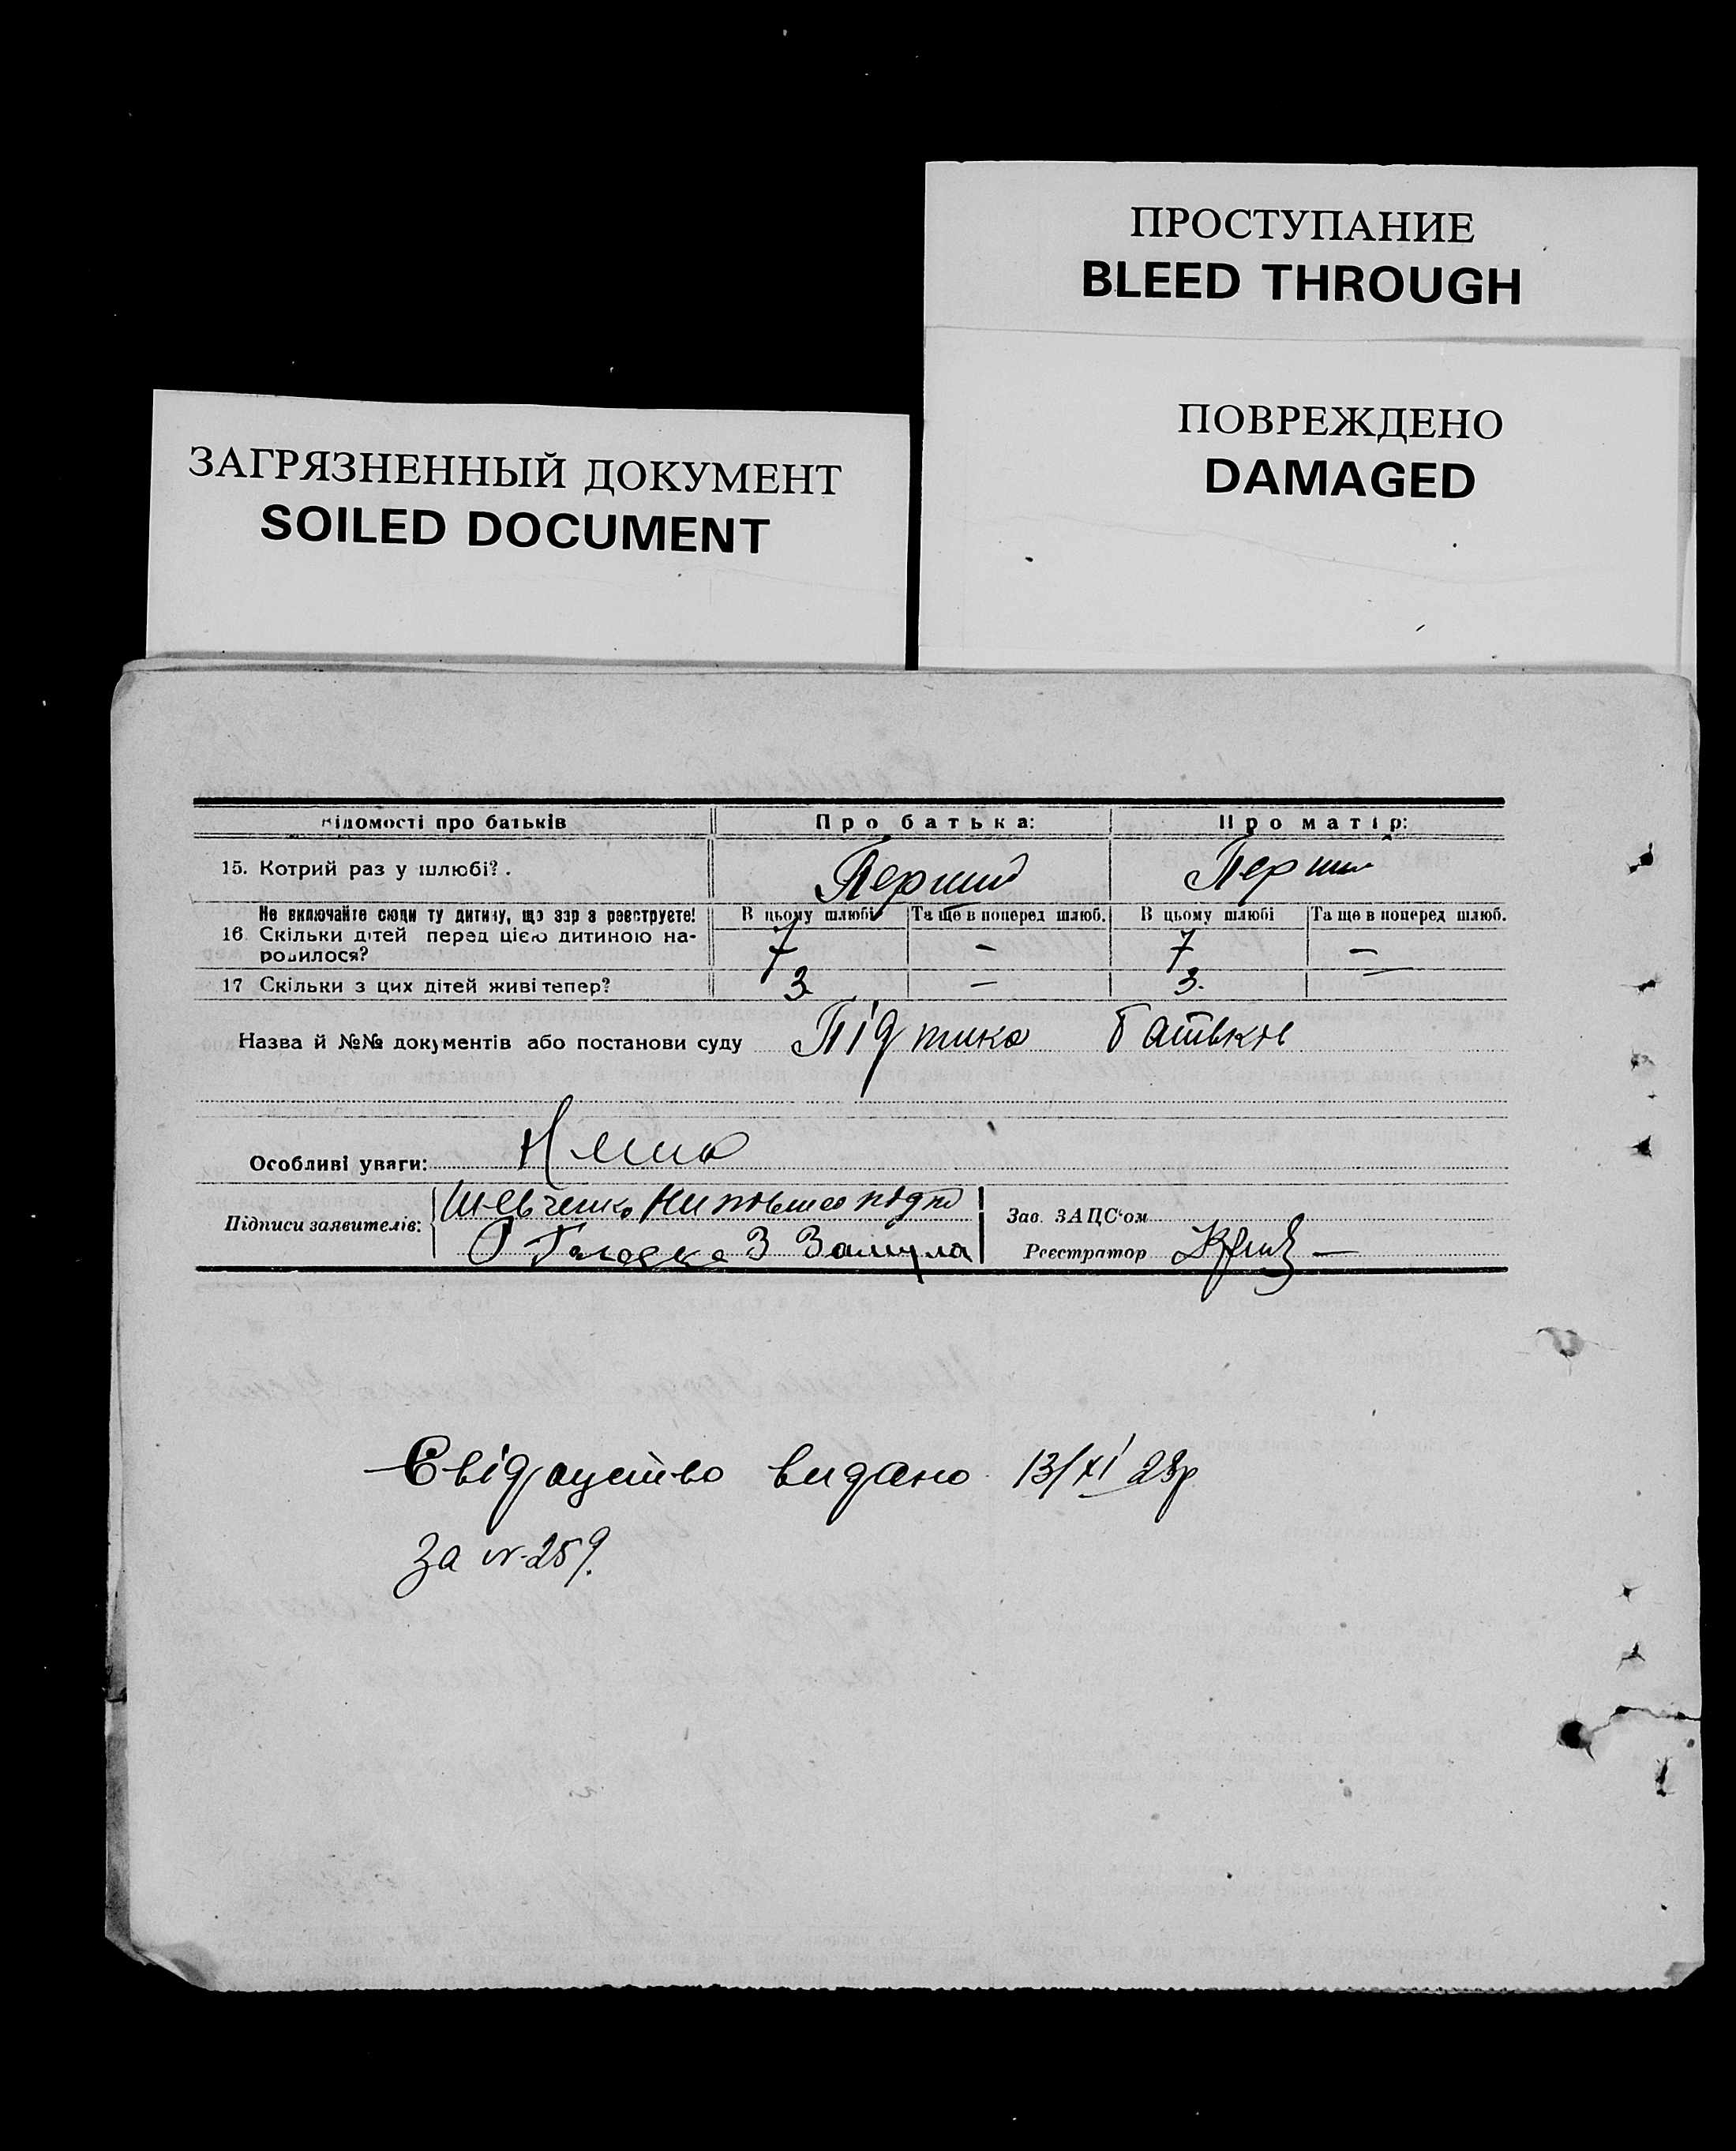 ПРОСТУПАНИЕ
BLEED THROUGH
ПОВРЕЖДЕНО
DAMAGED
ЗАГРЯЗНЕННЫЙ ДОКУМЕНТ
SOILED DOCUMENT
відомості про батьків Про батька: Про матір:
15. Котрий раз у шлюбі?. Перший Перший
Не включайте сюди ту дитину, що зараз реєструєте! В цьому шлюбі Та ще в поперед шлюб. В цьому шлюбі Та ще в поперед шлюб.
16. Скільки дітей перед цією дитиною на-
родилося? 7 — 7 —
17 Скільки з цих дітей живі тепер? 3 — 3. —
Назва й №№ документів або постанови суду Підписка батьків
Особливі уваги: Нема
Підписи заявителів: Шевченко
З Замула
Зав. ЗАЦС'ом
Реєстратор
Свідоцтво видано 13/XI 23р
За № 259.